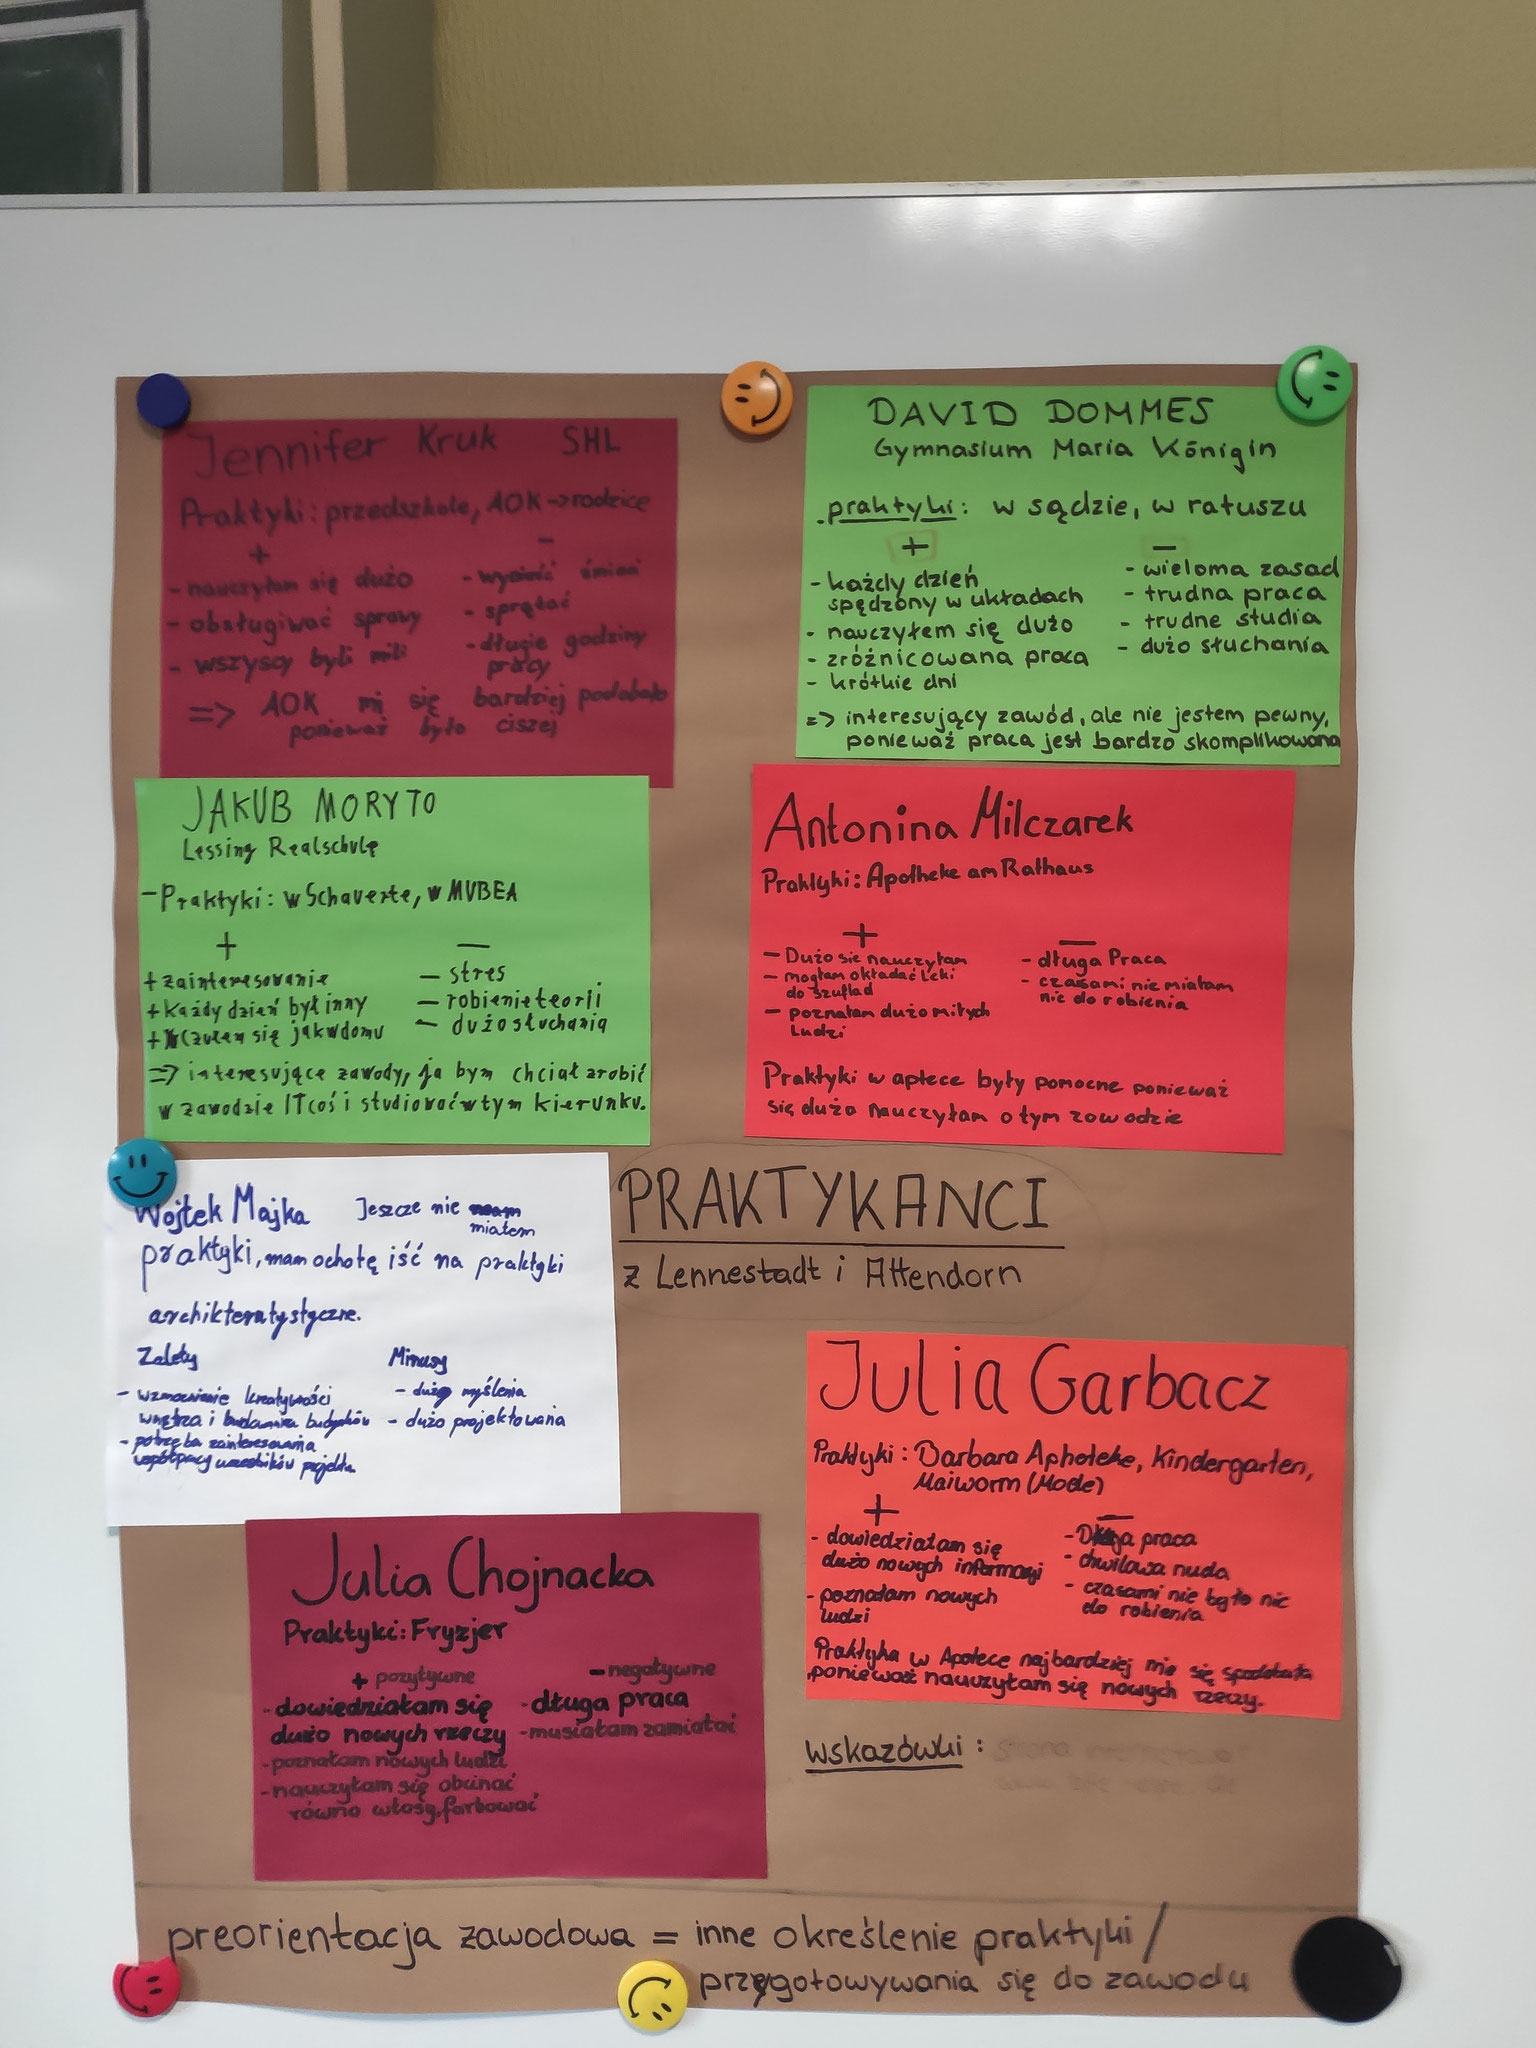 Jennifer Kruk SHL
Praktyki: przedszkole, AOK->rodzice
+
- nauczyłam się dużo
- obsługiwać sprawy
- wszyscy byli mili
-
- wynosić śmieci
- sprątać
- długie godziny
pracy
=> AOK mi się bardziej podobało
ponieważ było ciszej
DAVID DOMMES
Gymnasium Maria Königin
praktyki: w sądzie, w ratuszu
+
- każdy dzień
spędzony w układach
- nauczyłem się dużo
- zróżnicowana praca
- krótkie dni
-
- wieloma zasad
- trudna praca
- trudne studia
- dużo słuchania
=> interesujący zawód, ale nie jestem pewny,
ponieważ praca jest bardzo skomplikowana
JAKUB MORYTO
Lessing Realschule
- Praktyki: w Schauerte, w MUBEA
+
+ zainteresowanie
+ Każdy dzień był inny
+ Czułem się jak w domu
-
- stres
- robienie teorii
- dużo słuchania
=> interesujące zawody, ja bym chciał zrobić
w zawodzie IT coś i studiować w tym kierunku.
Antonina Milczarek
Praktyki: Apotheke am Rathaus
+
- Dużo sie nauczyłam
- mogłam okładać Leki
do szuflad
- poznałam dużo miłych
Ludzi
-
- długa Praca
- czasami nie miałam
nic do robienia
Praktyki w aptece były pomocne ponieważ
się dużo nauczyłam o tym zawodzie
Wojtek Majka Jeszcze nie
miałem
praktyki, mam ochotę iść na praktyki
archikteratystyczne.
Zalety
- wzmocnienie kreatywności
wnętrza i budowania budynków
- potrzeba zainteresowania
współpracy uczestników projektu
Minusy
- dużo myślenia
- dużo projektowania
PRAKTYKANCI
z Lennestadt i Attendorn
Julia Garbacz
Praktyki: Barbara Aphoteke, Kindergarten,
Maiworm (Mode)
+
- dowiedziałam się
dużo nowych informacji
- poznałam nowych
ludzi
-
- Długa praca
- chwilowa nuda
- czasami nie było nic
do robienia
Praktyka w Apotece najbardziej mie się spodobała
ponieważ nauczyłam się nowych rzeczy.
Julia Chojnacka
Praktyki: Fryzjer
+ pozytywne
- dowiedziałam się
dużo nowych rzeczy
- poznałam nowych ludzi
- nauczyłam się obcinać
równo włosy, farbować
- negatywne
- długa praca
- musiałam zamiatać
wskazówki:
preorientacja zawodowa = inne określenie praktyki /
przygotowywania się do zawodu